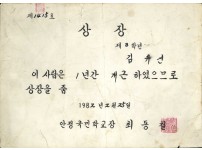 제1415호
상장
제 3학년
김
이 사람은 1년간 개근 하였으므로
상장을 줌
1982년 2월 25일
안정국민학교장 최동철